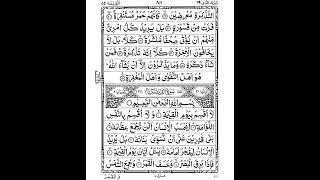 التَّذْكِرَةِ مُعْرِضِيْنَ ۝ كَاَنَّهُمْ حُمُرٌ مُّسْتَنْفِرَةٌ ۝
فَرَّتْ مِنْ قَسْوَرَةٍ ۝ بَلْ يُرِيْدُ كُلُّ امْرِئٍ
مِّنْهُمْ اَنْ يُّؤْتٰى صُحُفًا مُّنَشَّرَةً ۝ كَلَّا ۭ بَلْ لَّا
يَخَافُوْنَ الْاٰخِرَةَ ۝ كَلَّآ اِنَّهٗ تَذْكِرَةٌ ۝ فَمَنْ
شَآءَ ذَكَرَهٗ ۝ وَمَا يَذْكُرُوْنَ اِلَّآ اَنْ يَّشَآءَ اللّٰهُ
هُوَ اَهْلُ التَّقْوٰى وَاَهْلُ الْمَغْفِرَةِ ۝
بِسْمِ اللّٰهِ الرَّحْمٰنِ الرَّحِيْمِ
لَآ اُقْسِمُ بِيَوْمِ الْقِيٰمَةِ ۝ وَلَآ اُقْسِمُ بِالنَّفْسِ
اللَّوَّامَةِ ۝ اَيَحْسَبُ الْاِنْسَانُ اَلَّنْ نَّجْمَعَ عِظَامَهٗ ۝
بَلٰى قٰدِرِيْنَ عَلٰٓى اَنْ نُّسَوِّيَ بَنَانَهٗ ۝ بَلْ يُرِيْدُ
الْاِنْسَانُ لِيَفْجُرَ اَمَامَهٗ ۝ يَسْـَٔلُ اَيَّانَ يَوْمُ الْقِيٰمَةِ ۝
فَاِذَا بَرِقَ الْبَصَرُ ۝ وَخَسَفَ الْقَمَرُ ۝ وَجُمِعَ الشَّمْسُ